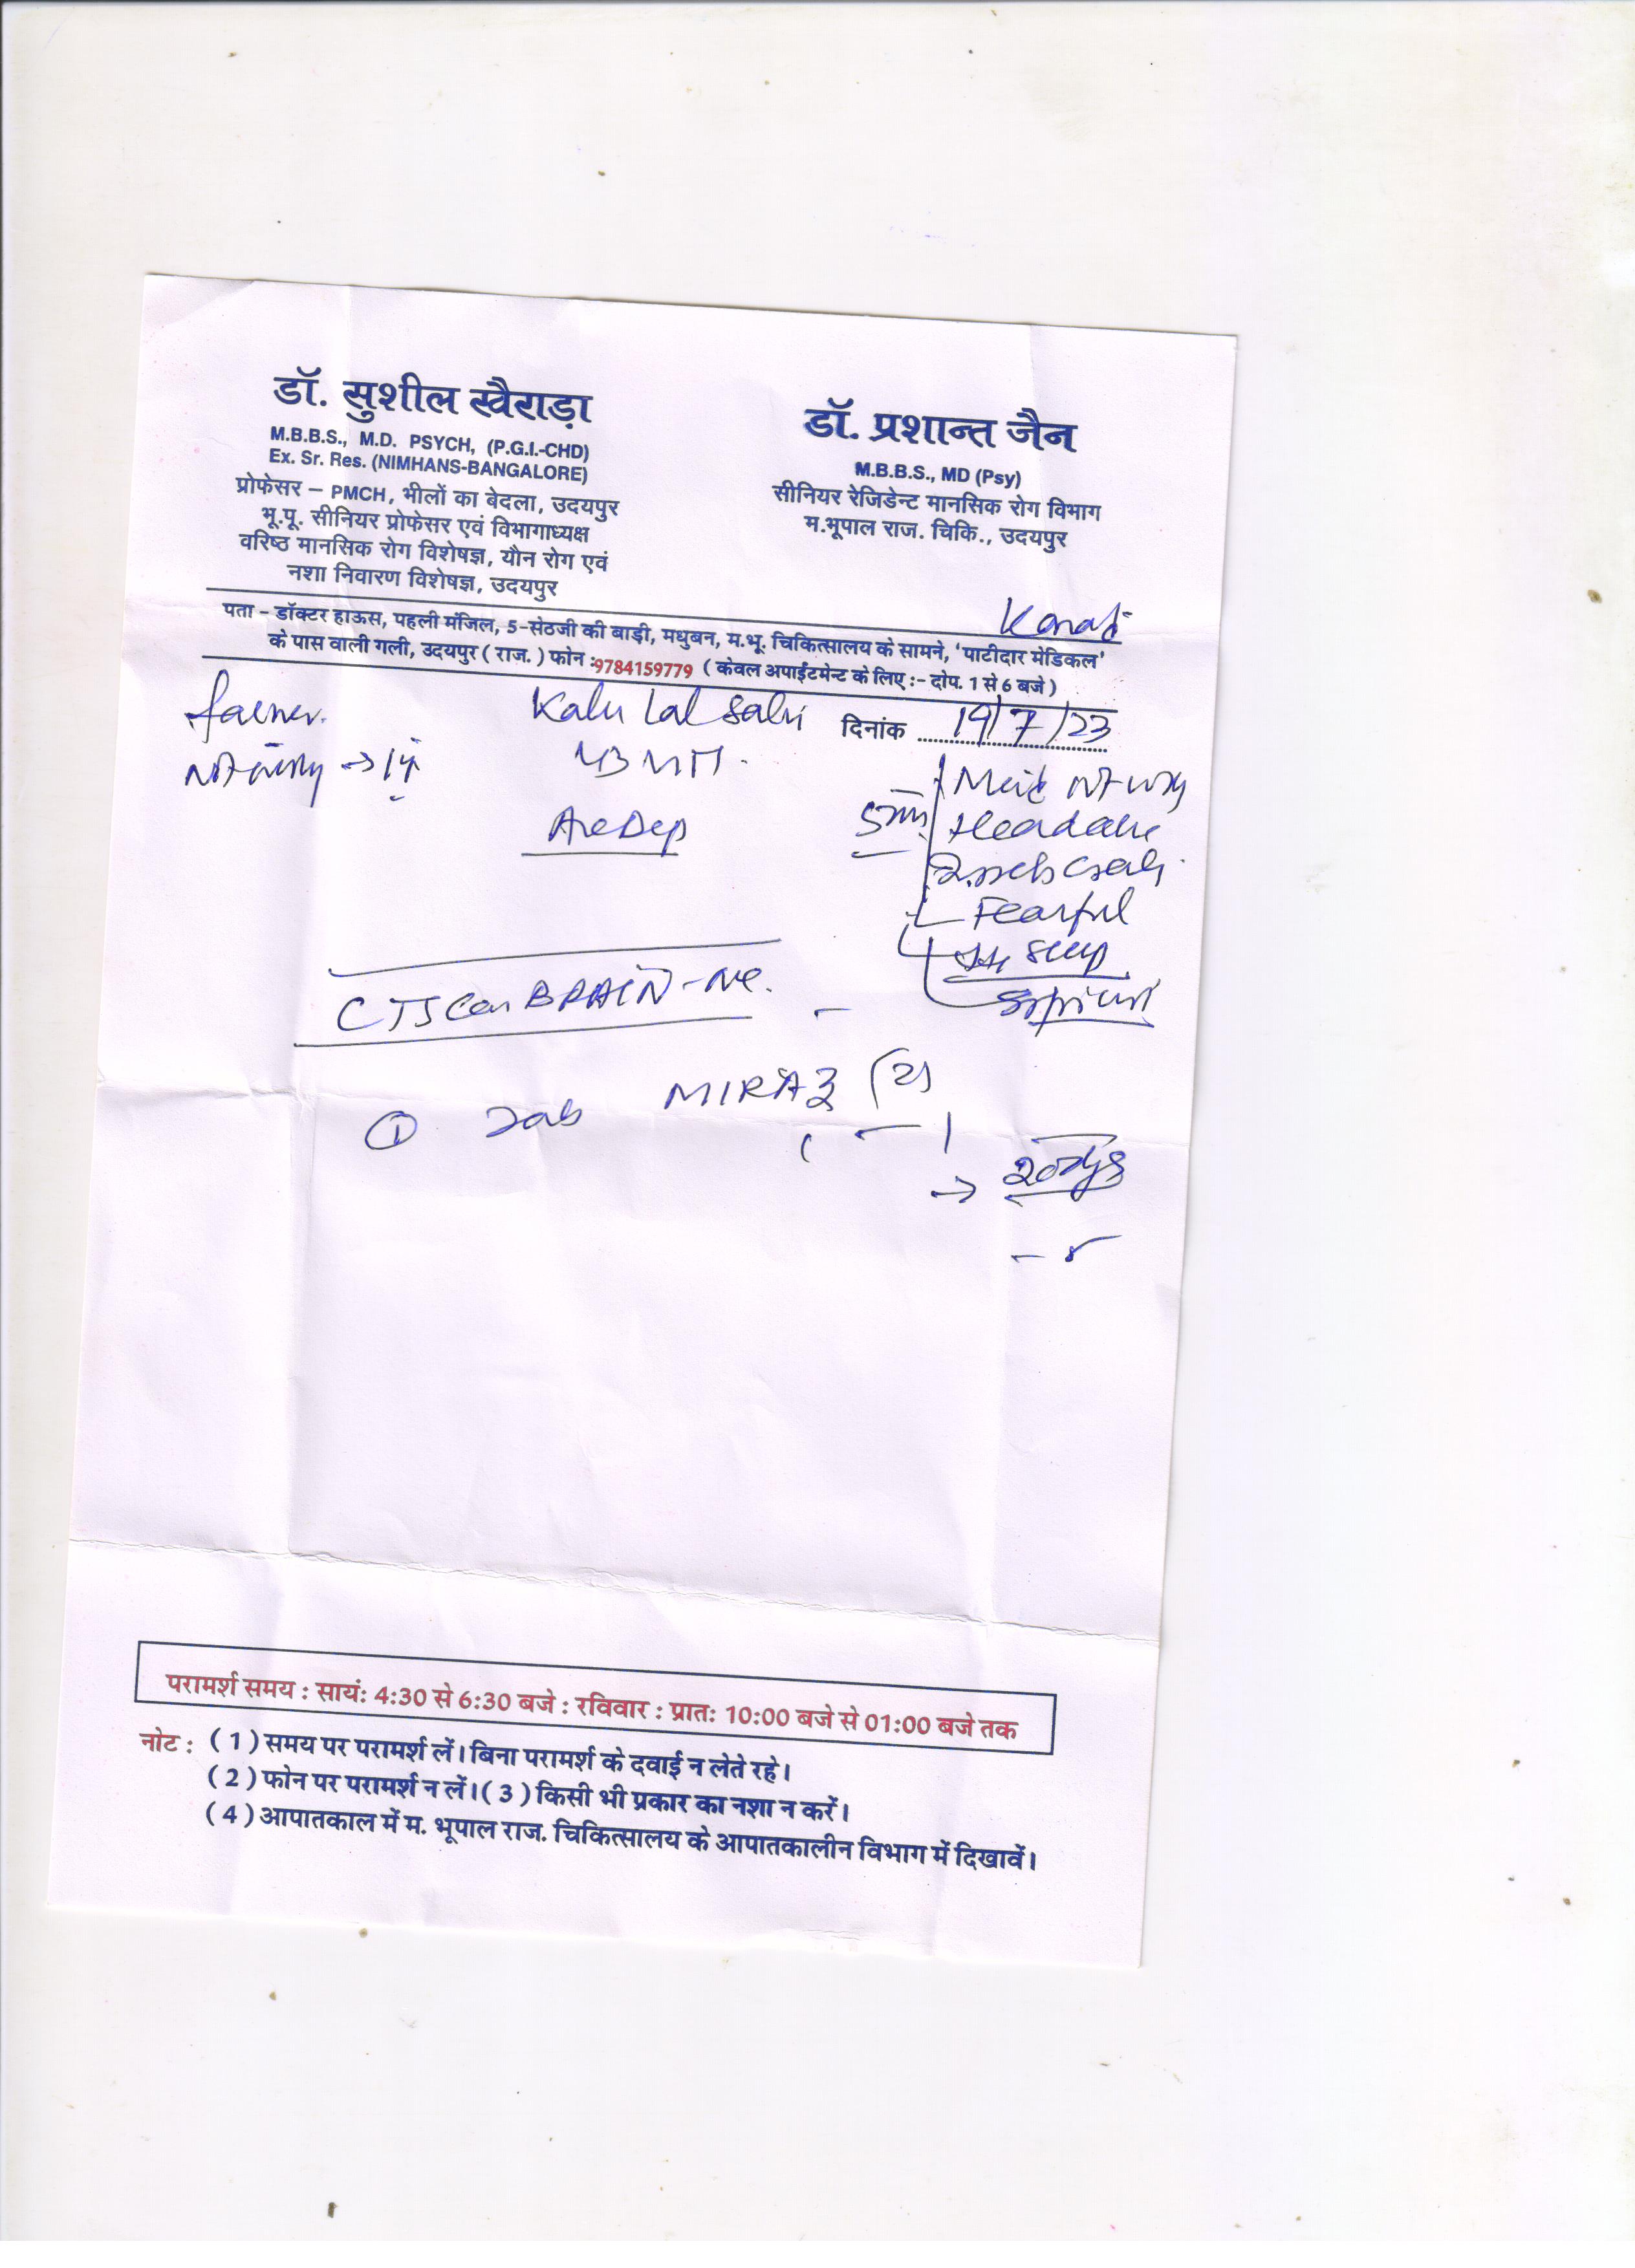 डॉ. सुशील खैराड़ा
M.B.B.S., M.D. PSYCH, (P.G.I.-CHD)
Ex. Sr. Res. (NIMHANS-BANGALORE)
प्रोफेसर – PMCH, भीलों का बेदला, उदयपुर
भू.पू. सीनियर प्रोफेसर एवं विभागाध्यक्ष
वरिष्ठ मानसिक रोग विशेषज्ञ, यौन रोग एवं
नशा निवारण विशेषज्ञ, उदयपुर
डॉ. प्रशान्त जैन
M.B.B.S., MD (Psy)
सीनियर रेजिडेन्ट मानसिक रोग विभाग
म.भूपाल राज. चिकि., उदयपुर
पता – डॉक्टर हाऊस, पहली मंजिल, 5-सेठजी की बाड़ी, मधुबन, म.भू. चिकित्सालय के सामने, 'पाटीदार मेडिकल'
के पास वाली गली, उदयपुर ( राज. ) फोन :9784159779 ( केवल अपाईंटमेन्ट के लिए :- दोप. 1 से 6 बजे )
Kalu Lal Salvi दिनांक 19/7/23
Headache
Fearful
Sleep
CT Scan BRAIN -ve.
① Tab MIRAZ
→ 20 dys
परामर्श समय : सायं: 4:30 से 6:30 बजे : रविवार : प्रातः 10:00 बजे से 01:00 बजे तक
नोट : ( 1 ) समय पर परामर्श लें। बिना परामर्श के दवाई न लेते रहे।
( 2 ) फोन पर परामर्श न लें। ( 3 ) किसी भी प्रकार का नशा न करें।
( 4 ) आपातकाल में म. भूपाल राज. चिकित्सालय के आपातकालीन विभाग में दिखावें।